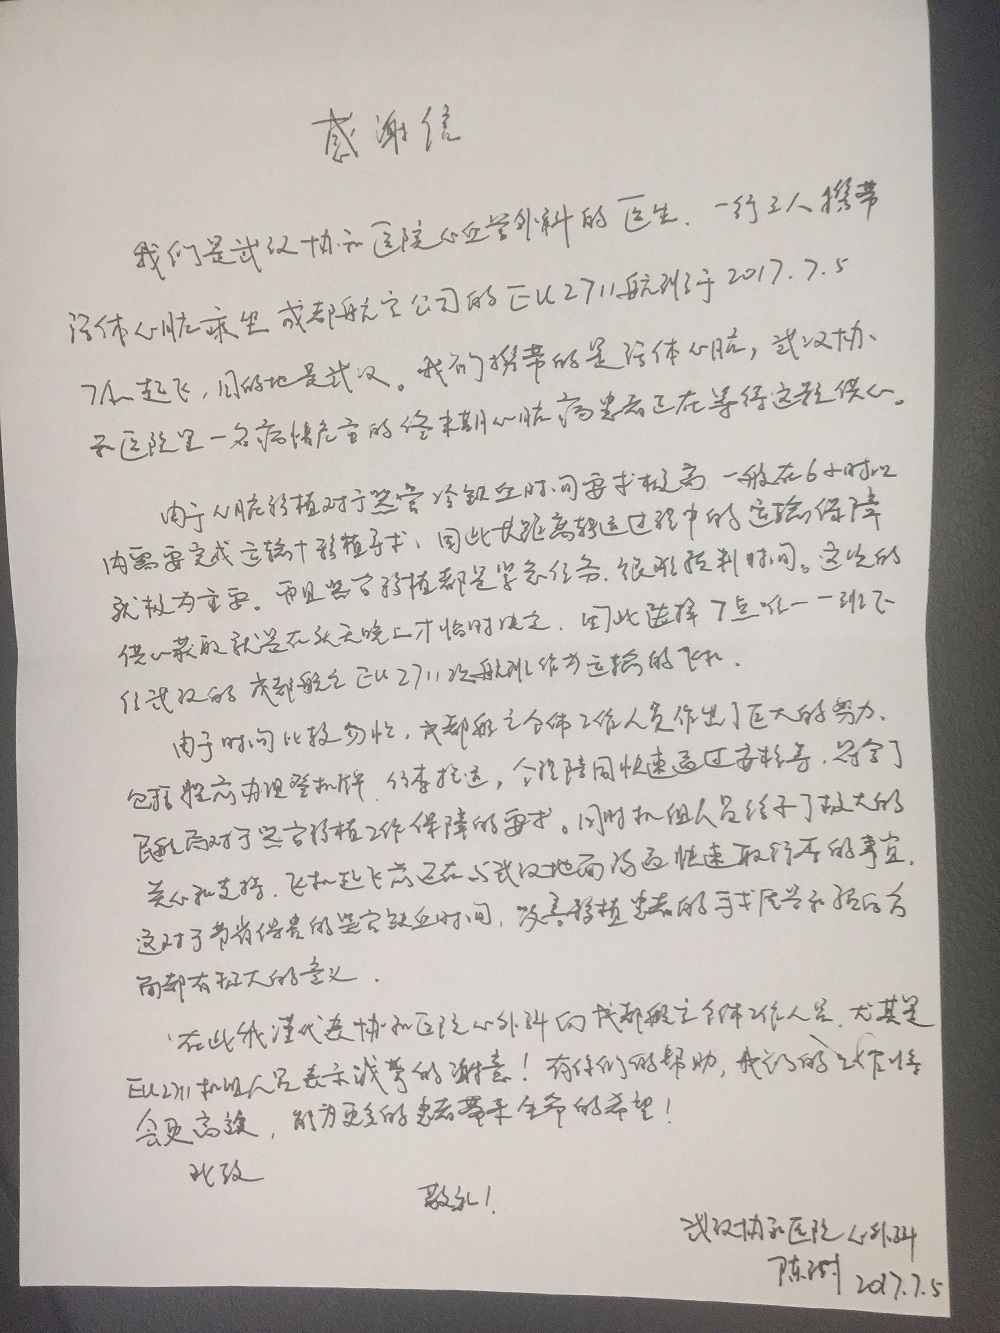 感谢信
我们是武汉协和医院心血管外科的医生,一行三人携带
活体心脏乘坐成都航空公司的EU2711航班于2017.7.5
7点起飞,目的地是武汉。我们携带的是活体心脏,武汉协
和医院里一名病情危重的终末期心脏病患者正在等待这颗供心。
由于心脏移植对于器官冷缺血时间要求极高,一般在6小时以
内需要完成运输+移植手术,因此长距离转运过程中的运输保障
就极为重要。而且器官移植都是紧急任务,很难预判时间。这次的
供心获取就是在头天晚上才临时决定,因此选择7点唯一一班飞
往武汉的成都航空EU2711次航班作为运输的飞机.
由于时间比较匆忙,成都航空全体工作人员作出了巨大的努力,
包括提前办理登机牌,行李托运,全程陪同快速通过安检等,符合了
民航局对于器官移植工作保障的要求。同时机组人员给予了极大的
关心和支持,飞机起飞前还在与武汉地面沟通快速取行李的事宜,
这对于节省保贵的器官缺血时间,改善移植患者的手术质量和预后方
面都有极大的意义.
在此我谨代表协和医院心外科向成都航空全体工作人员,尤其是
EU2711机组人员表示诚挚的谢意!有你们的帮助,我们的工作将
会更高效,能为更多的患者带来生命的希望!
此致
敬礼!
武汉协和医院 心外科
陈澍 2017.7.5